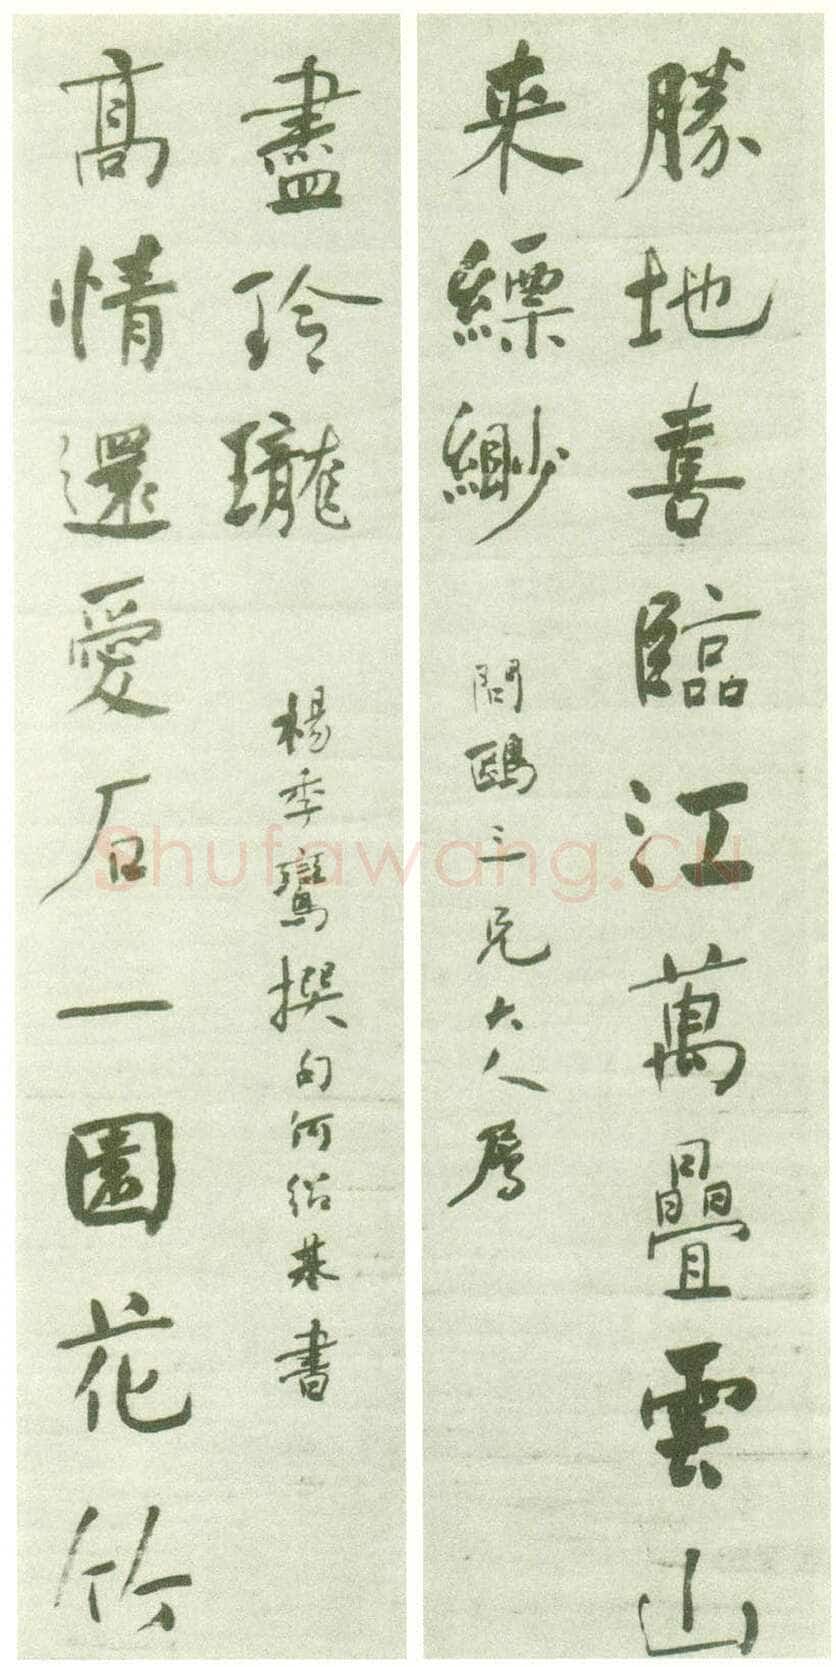 勝地喜臨江萬疊雲山
来縹緲
問鷗三兄大人屬
高情還愛石一園花竹
盡玲瓏
楊季鸞撰句何紹基書
Shufawang.CN